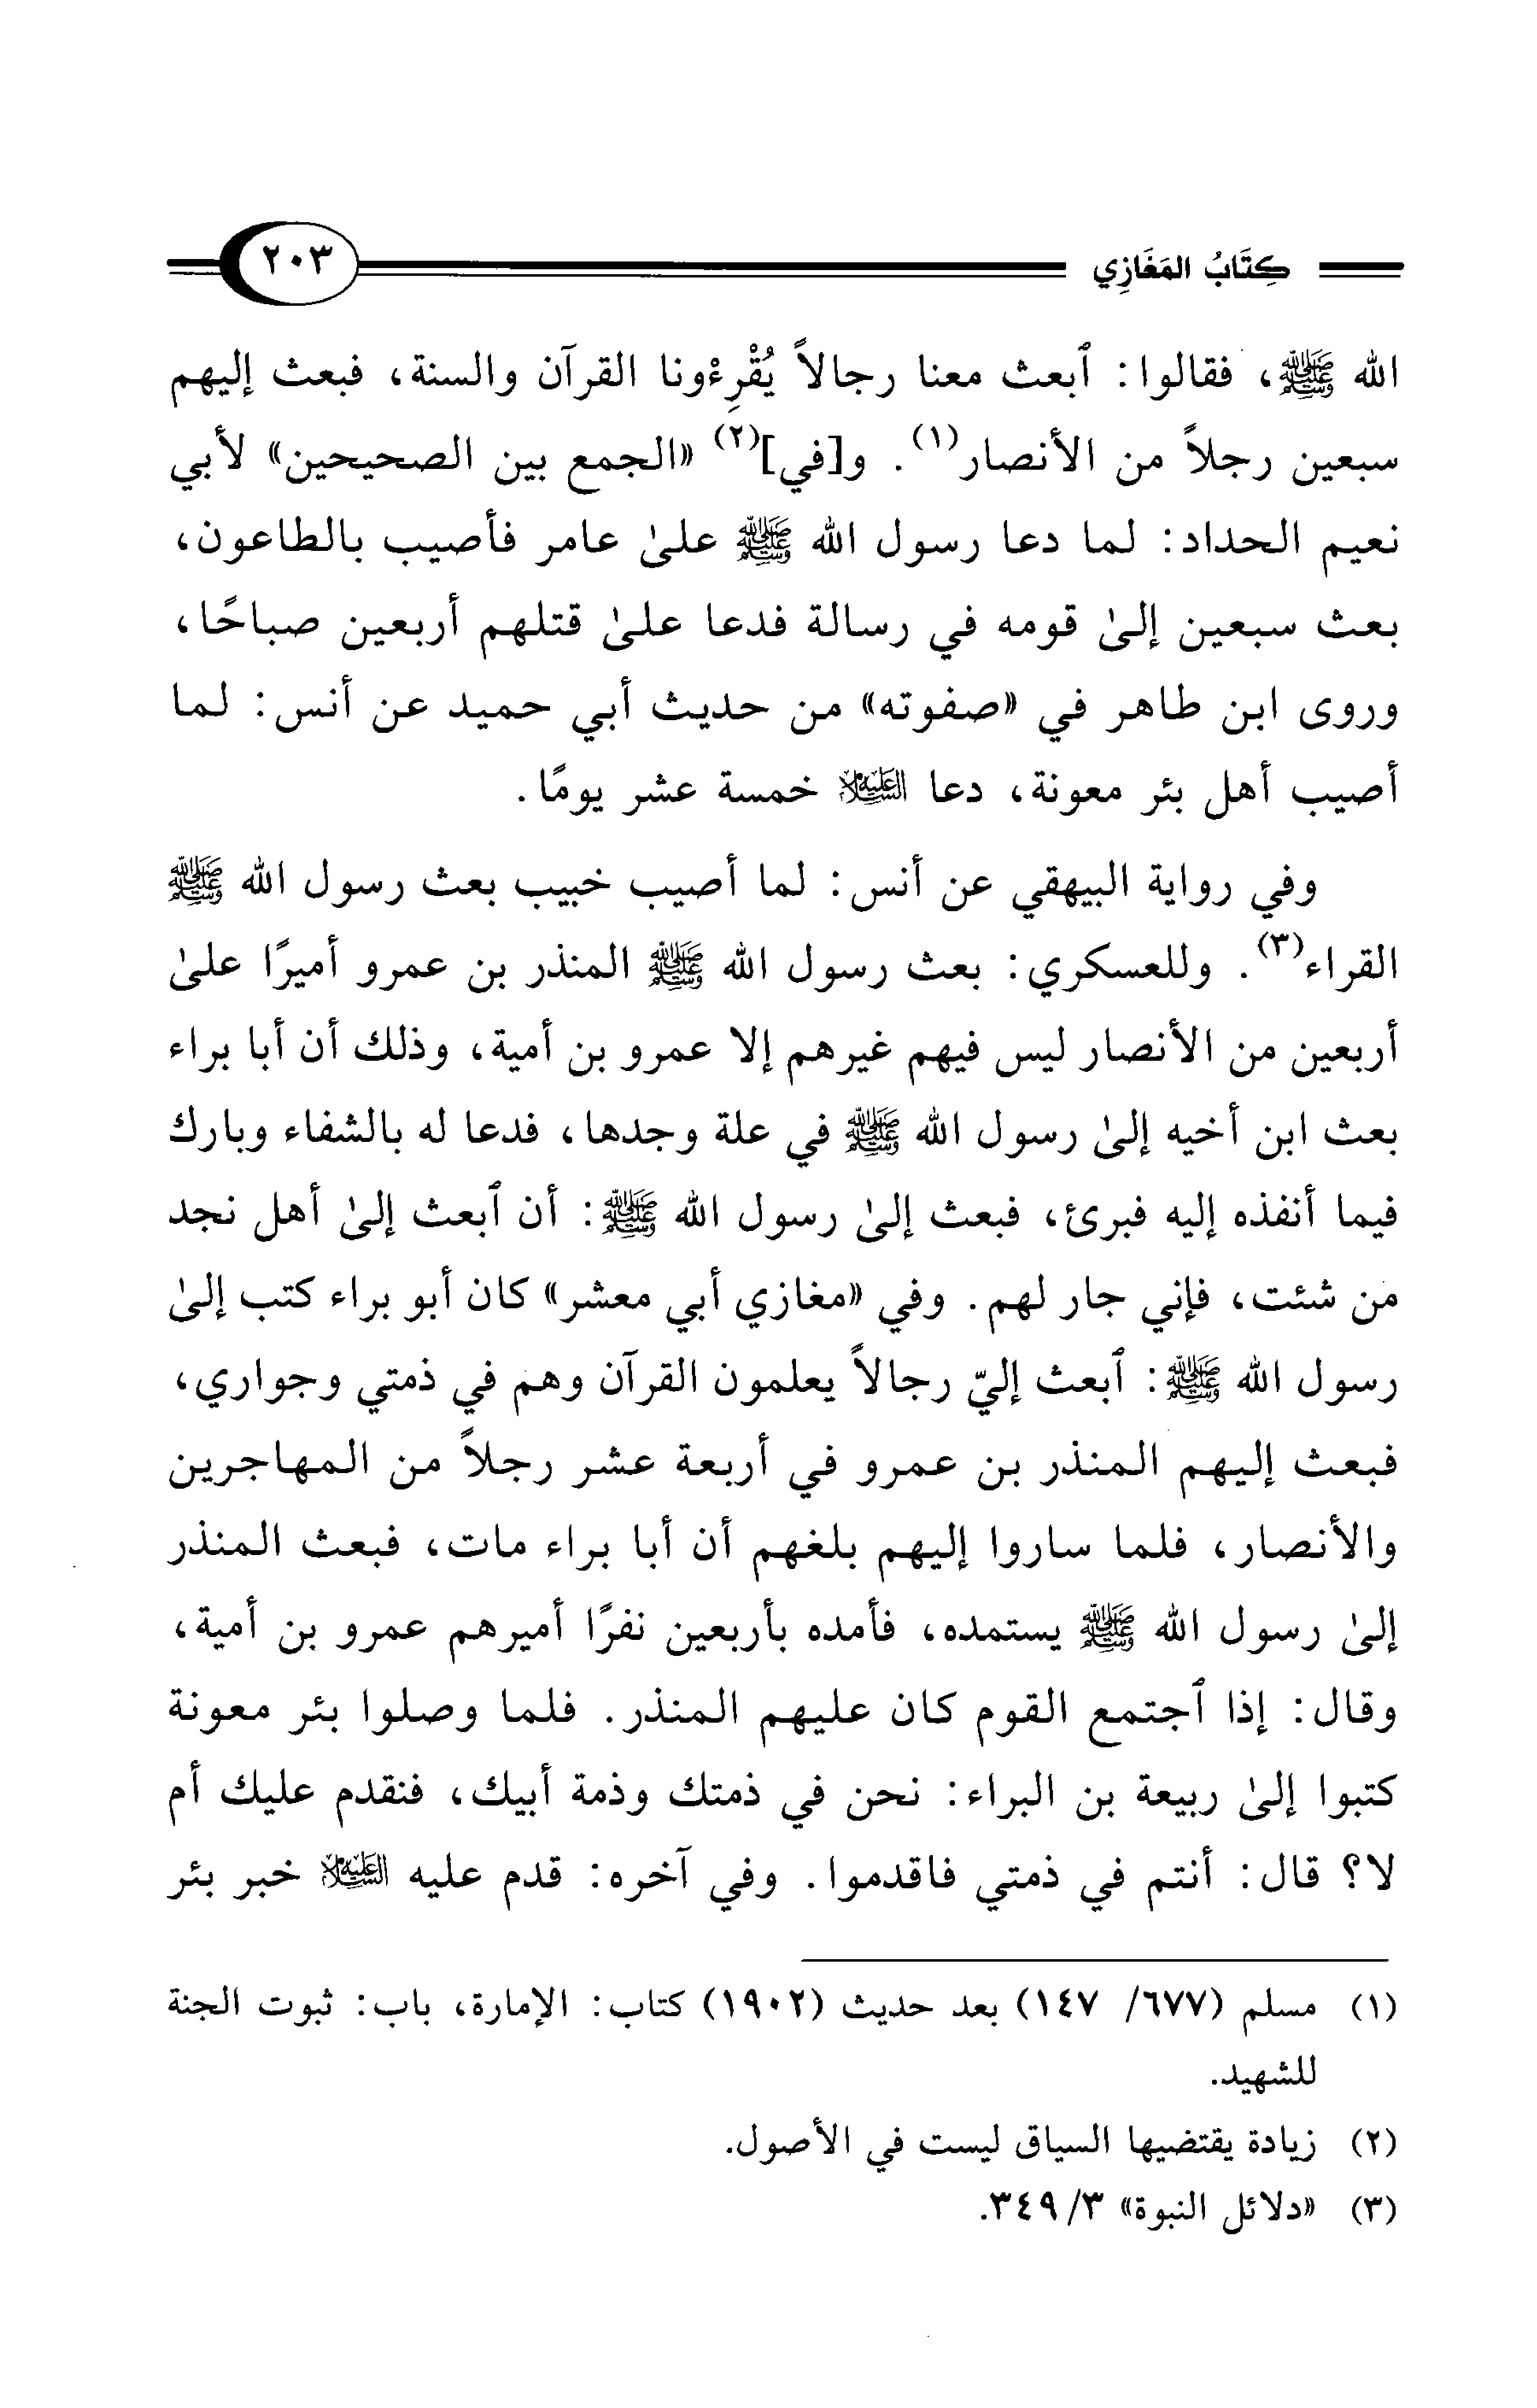 كِتَابُ المَغَازِي ٢٠٣
الله ﷺ، فقالوا: ٱبعث معنا رجالاً يُقْرِءُونا القرآن والسنة، فبعث إليهم
سبعين رجلاً من الأنصار(١). و[في](٢) «الجمع بين الصحيحين» لأبي
نعيم الحداد: لما دعا رسول الله ﷺ علىٰ عامر فأصيب بالطاعون،
بعث سبعين إلىٰ قومه في رسالة فدعا علىٰ قتلهم أربعين صباحًا،
وروى ابن طاهر في «صفوته» من حديث أبي حميد عن أنس: لما
أصيب أهل بئر معونة، دعا العَلَيْهِ السَّلام خمسة عشر يومًا.
وفي رواية البيهقي عن أنس: لما أصيب خبيب بعث رسول الله ﷺ
القراء(٣). وللعسكري: بعث رسول الله ﷺ المنذر بن عمرو أميرًا علىٰ
أربعين من الأنصار ليس فيهم غيرهم إلا عمرو بن أمية، وذلك أن أبا براء
بعث ابن أخيه إلىٰ رسول الله ﷺ في علة وجدها، فدعا له بالشفاء وبارك
فيما أنفذه إليه فبرئ، فبعث إلىٰ رسول الله ﷺ: أن ٱبعث إلىٰ أهل نجد
من شئت، فإني جار لهم. وفي «مغازي أبي معشر» كان أبو براء كتب إلىٰ
رسول الله ﷺ: ٱبعث إليّ رجالاً يعلمون القرآن وهم في ذمتي وجواري،
فبعث إليهم المنذر بن عمرو في أربعة عشر رجلاً من المهاجرين
والأنصار، فلما ساروا إليهم بلغهم أن أبا براء مات، فبعث المنذر
إلىٰ رسول الله ﷺ يستمده، فأمده بأربعين نفرًا أميرهم عمرو بن أمية،
وقال: إذا ٱجتمع القوم كان عليهم المنذر. فلما وصلوا بئر معونة
كتبوا إلىٰ ربيعة بن البراء: نحن في ذمتك وذمة أبيك، فنقدم عليك أم
لا؟ قال: أنتم في ذمتي فاقدموا. وفي آخره: قدم عليه العَلَيْهِ السَّلام خبر بئر
(١) مسلم (٦٧٧/ ١٤٧) بعد حديث (١٩٠٢) كتاب: الإمارة، باب: ثبوت الجنة
للشهيد.
(٢) زيادة يقتضيها السياق ليست في الأصول.
(٣) «دلائل النبوة» ٣/ ٣٤٩.